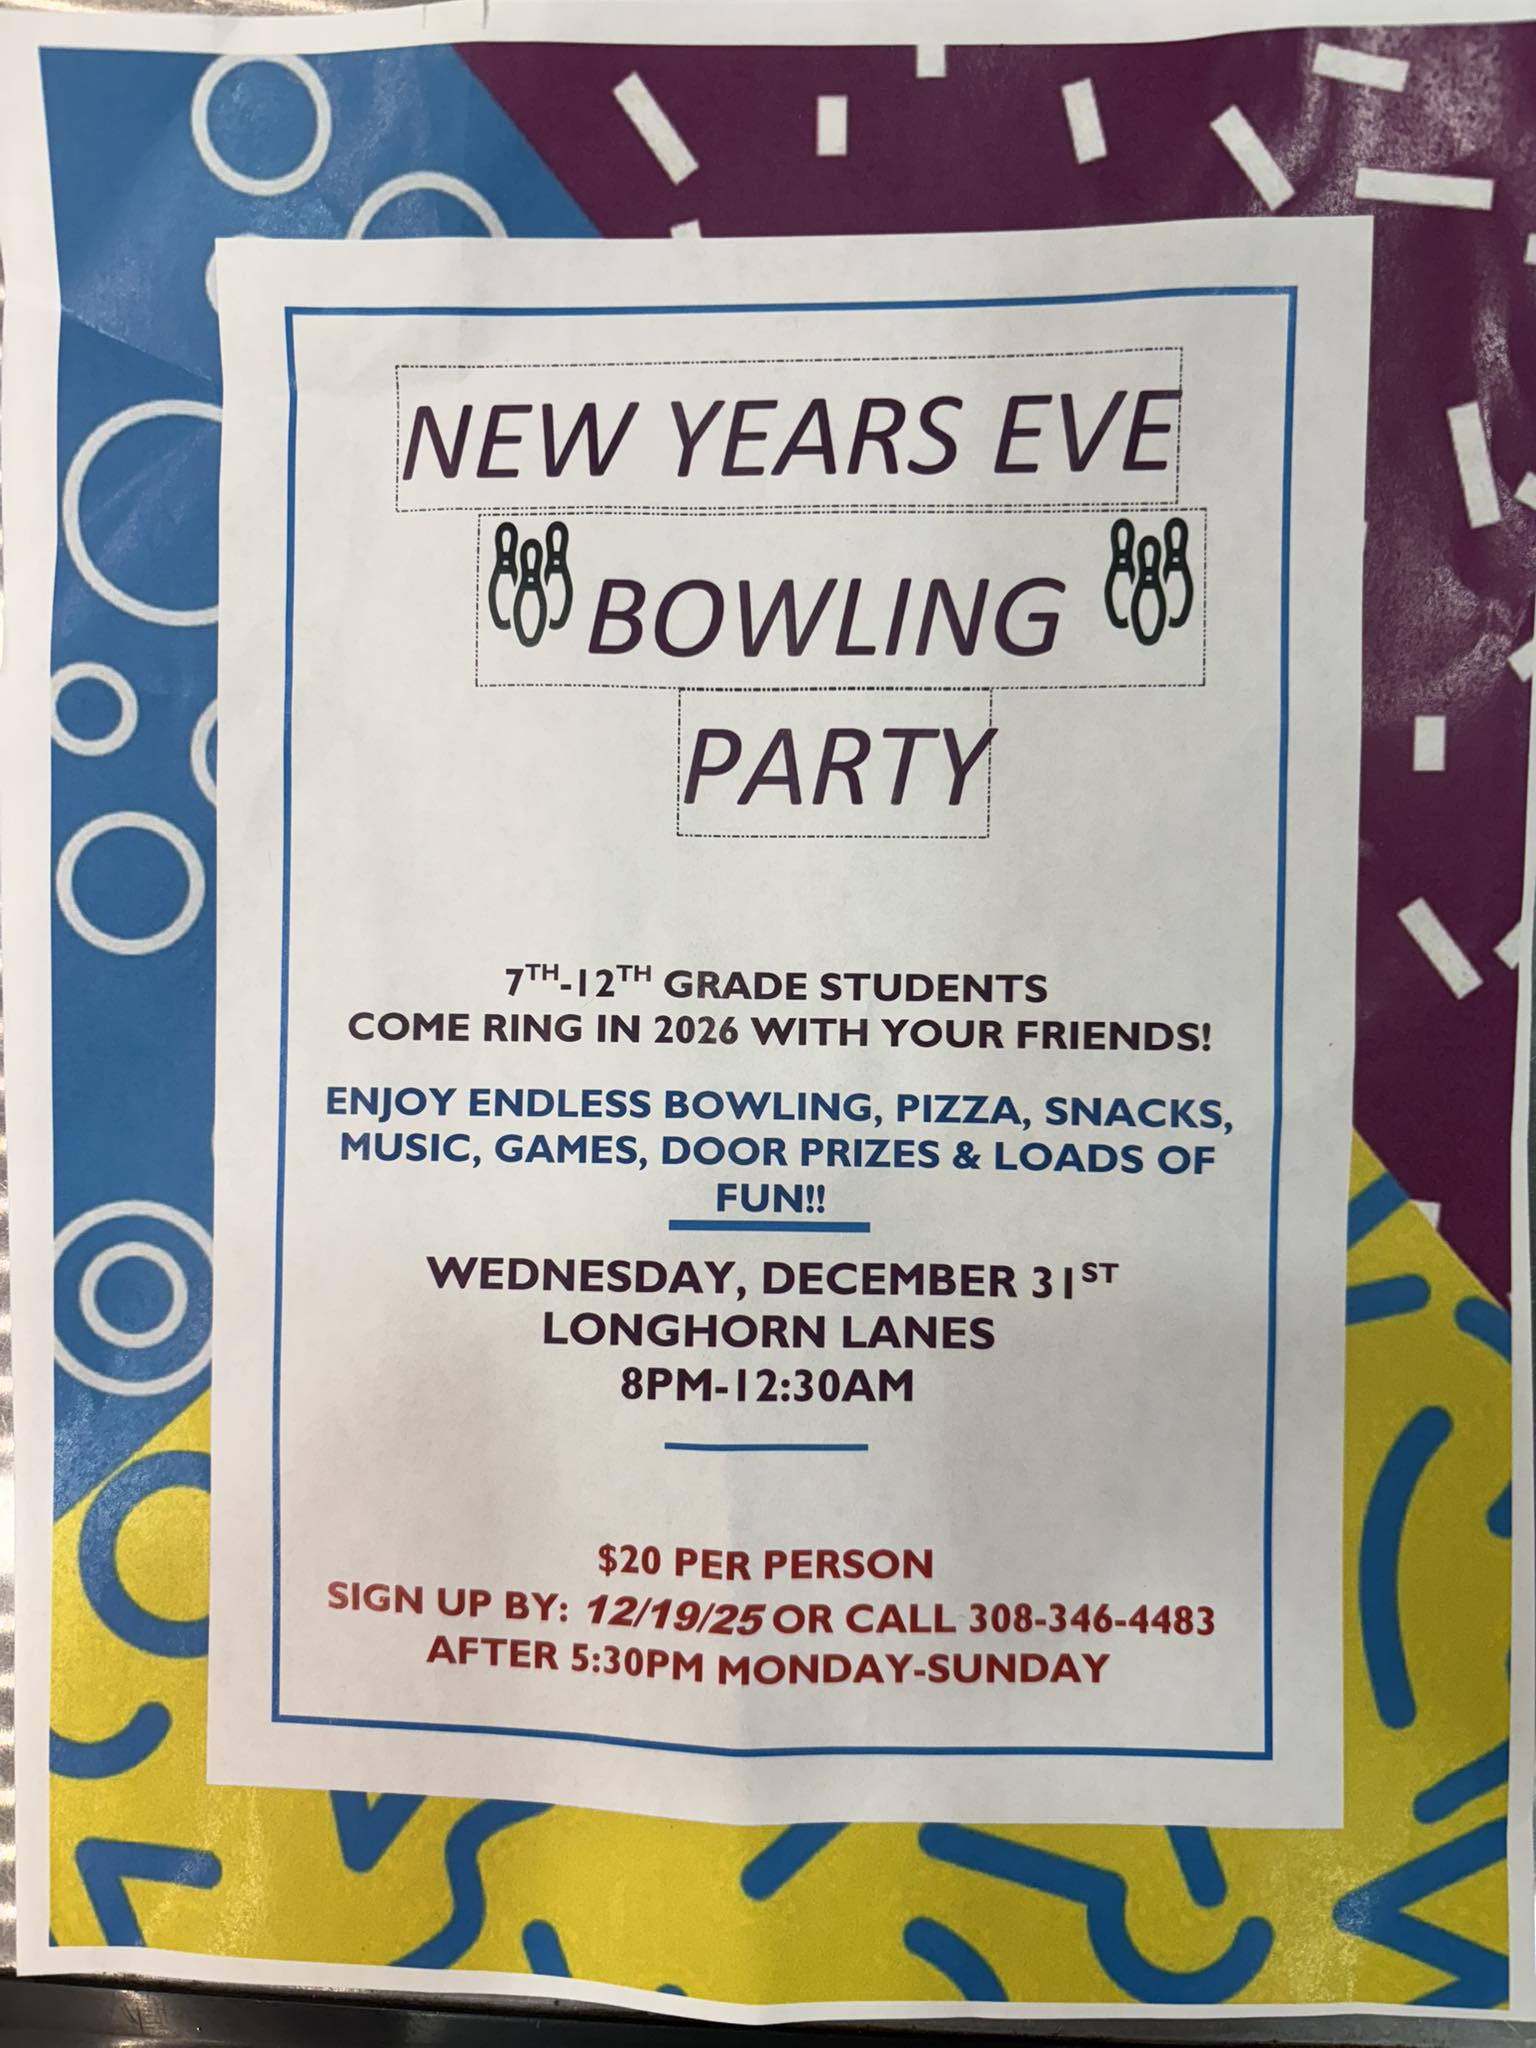 NEW YEARS EVE
BOWLING
PARTY
7TH-12TH GRADE STUDENTS
COME RING IN 2026 WITH YOUR FRIENDS!
ENJOY ENDLESS BOWLING, PIZZA, SNACKS,
MUSIC, GAMES, DOOR PRIZES & LOADS OF
FUN!!
WEDNESDAY, DECEMBER 31ST
LONGHORN LANES
8PM-12:30AM
$20 PER PERSON
SIGN UP BY: 12/19/25 OR CALL 308-346-4483
AFTER 5:30PM MONDAY-SUNDAY